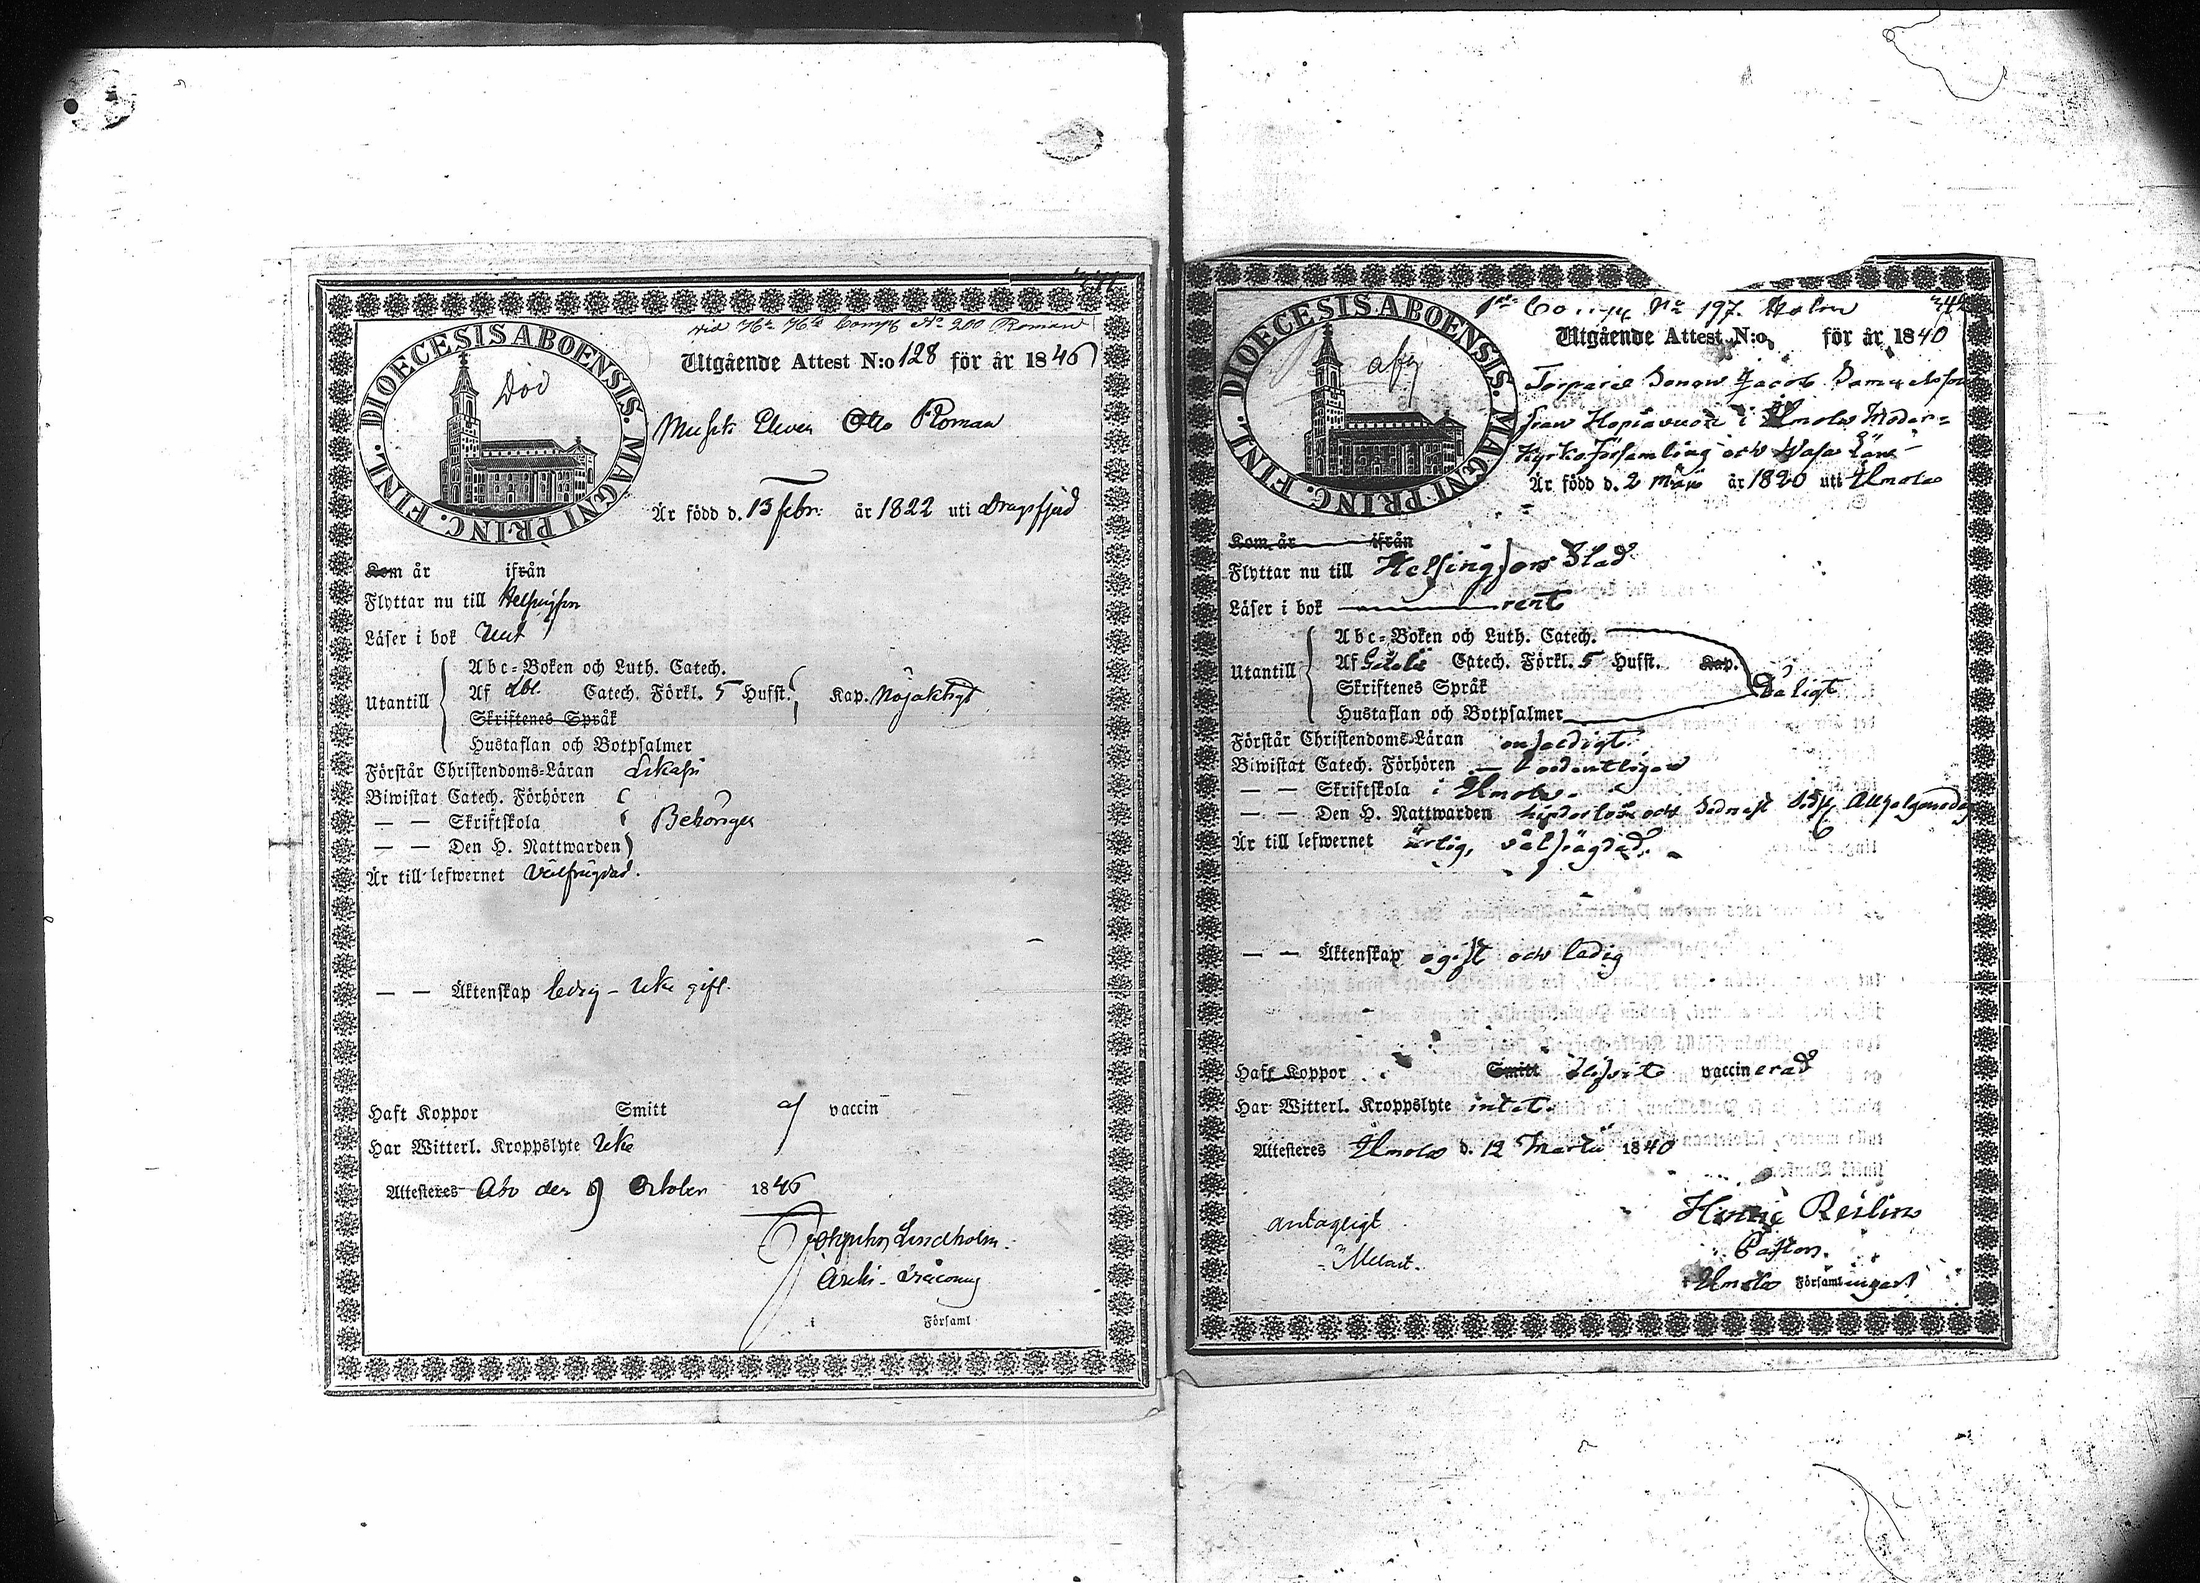 vid 7de 7de Comp. No 200 Roman
DIOECESIS ABOENSIS. MAGNI PRINC. FINL.
Död
Utgående Attest N:o 128 för år 1846
Musik Eleven Otto Roman
Är född d. 13 febr: år 1822 uti Dragsfjerd
Kom år ifrån
Flyttar nu till Helsingfors
Läser i bok
Utantill
Abc-Boken och Luth. Catech.
Af Catech. Förkl. 5 Hufst. Kap. Nöjaktigt
Skriftenes Språk
Hustaflan och Botpsalmer
Förstår Christendoms-Läran
Biwistat Catech. Förhören
— — Skriftskola Behörigen
— — Den H. Nattwarden
Är till lefwernet välfrägdad.
— — Äktenskap ledig – icke gift.
Haft Koppor Smitt af vaccin
Har Witterl. Kroppslyte icke
Attesteras Åbo den 9 October 1846
Lindholm.
i Församl
1sta Comp. No 197. Holm
342
DIOECESIS ABOENSIS. MAGNI PRINC. FINL.
afg
Utgående Attest N:o för år 1840
Torpare Sonen Jacob Samuelsson
från i Ilmola Moder-
kyrkoförsamling och Wasa Län
Är född d. 2 Maii år 1820 uti Ilmola
Kom år ifrån
Flyttar nu till Helsingfors Stad
Läser i bok rent
Utantill
Abc-Boken och Luth. Catech.
Af Catech. Förkl. 5 Hufst. Kap.
Skriftenes Språk Dåligt
Hustaflan och Botpsalmer
Förstår Christendoms-Läran enfaldigt.
Biwistat Catech. Förhören – ordentligen
— — Skriftskola i Ilmola.
— — Den H. Nattwarden hinderlös och sednast
Är till lefwernet ärlig, välfrägdad.
— — Äktenskap ogift och ledig
Haft Koppor Smitt blifvit vaccinerad
Har Witterl. Kroppslyte intet.
Attesteras Ilmola d. 12 Martii 1840
antagligt
Melart.
Reilin
Pastor.
Ilmola Församlingart